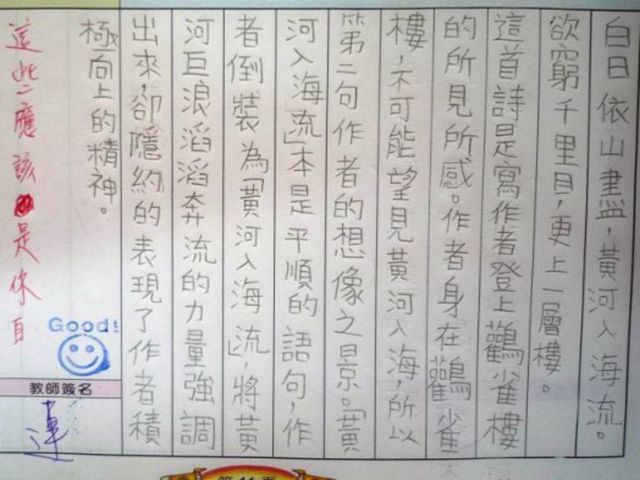 白日依山盡，黃河入海流。
欲窮千里目，更上一層樓。
這首詩是寫作者登上鸛雀樓
的所見所感。作者身在鸛雀
樓，不可能望見黃河入海，所以
第二句作者的想像之景。「黃
河入海流」本是平順的語句，作
者倒裝為「黃河入海流」，將黃
河巨浪滔滔奔流的力量強調
出來，卻隱約的表現了作者積
極向上的精神。
這些應該是你自
Good!
教師簽名
蓮
第11頁